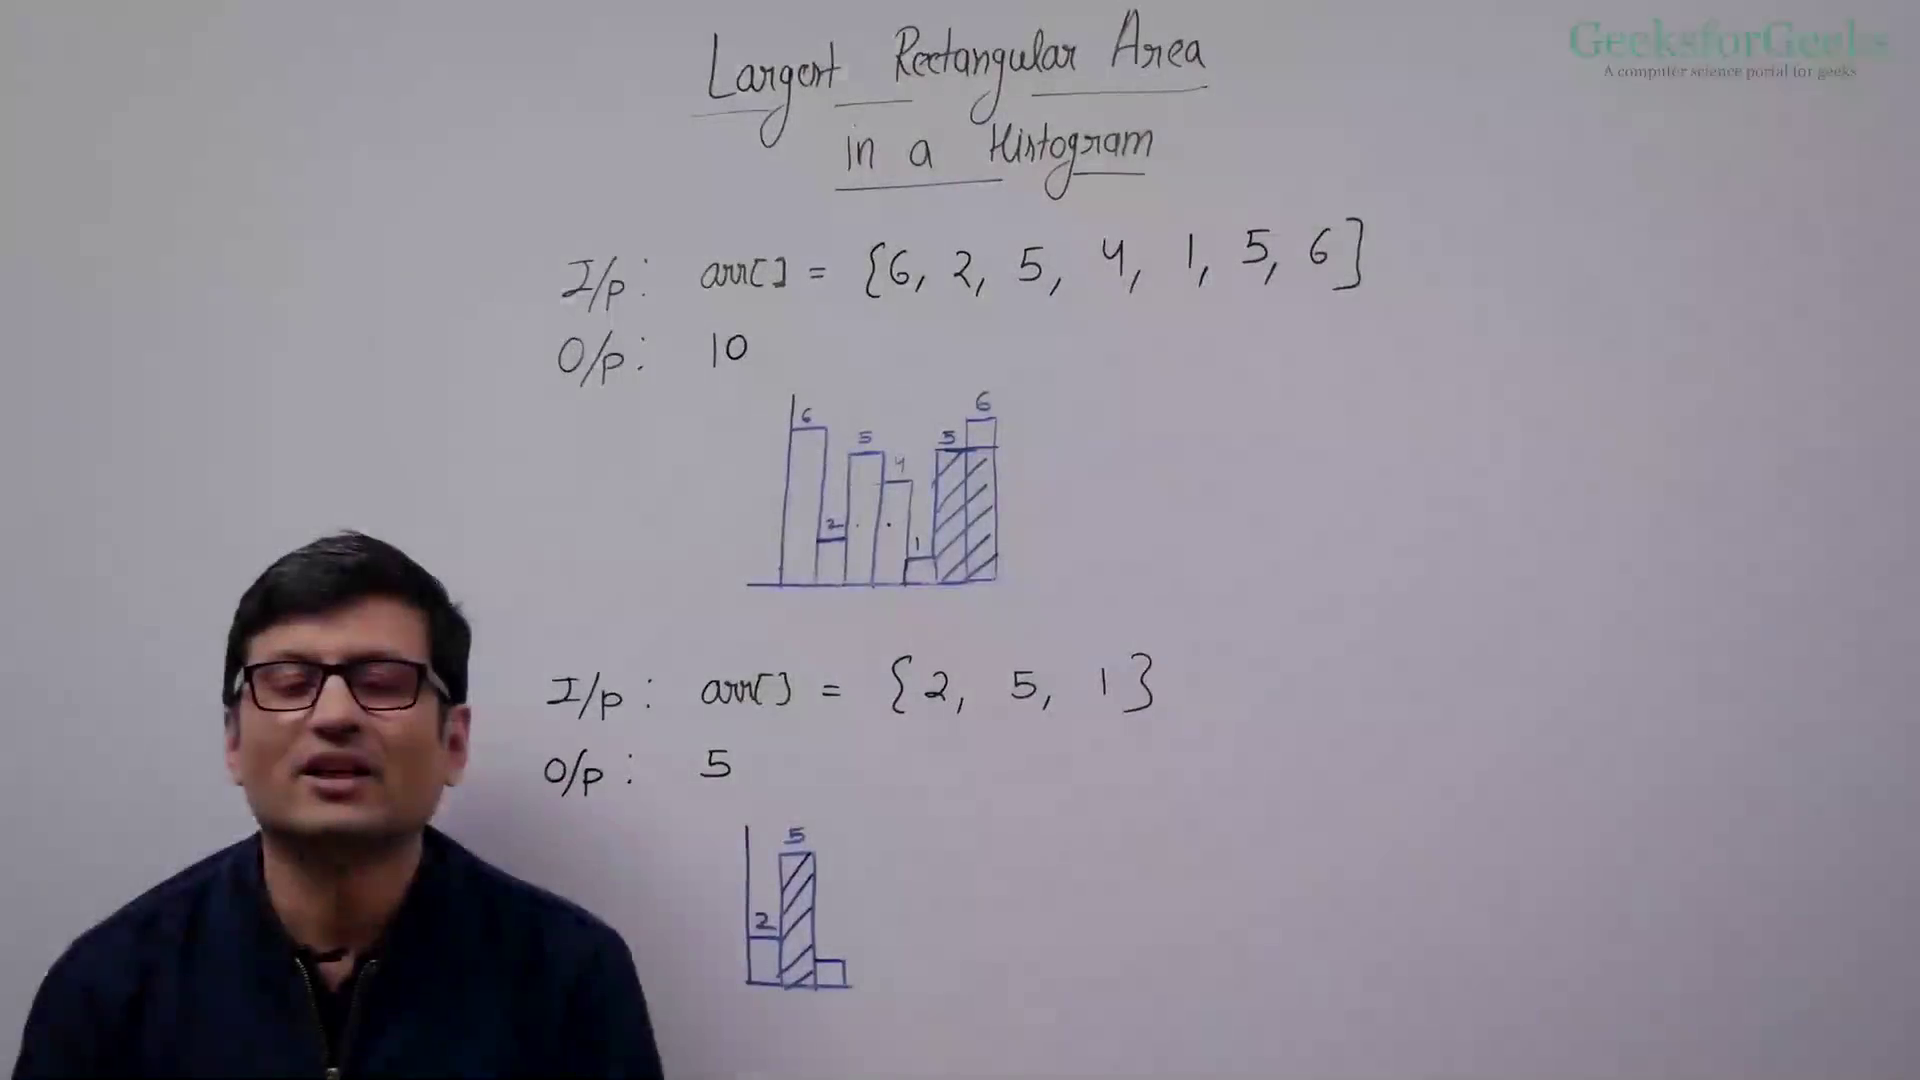 GeeksforGeeks
A computer science portal for geeks
Largest Rectangular Area
in a Histogram
I/p: arr[] = {6, 2, 5, 4, 1, 5, 6]
O/p: 10
6 2 5 4 1 5 6
I/p: arr[] = {2, 5, 1}
O/p: 5
2 5